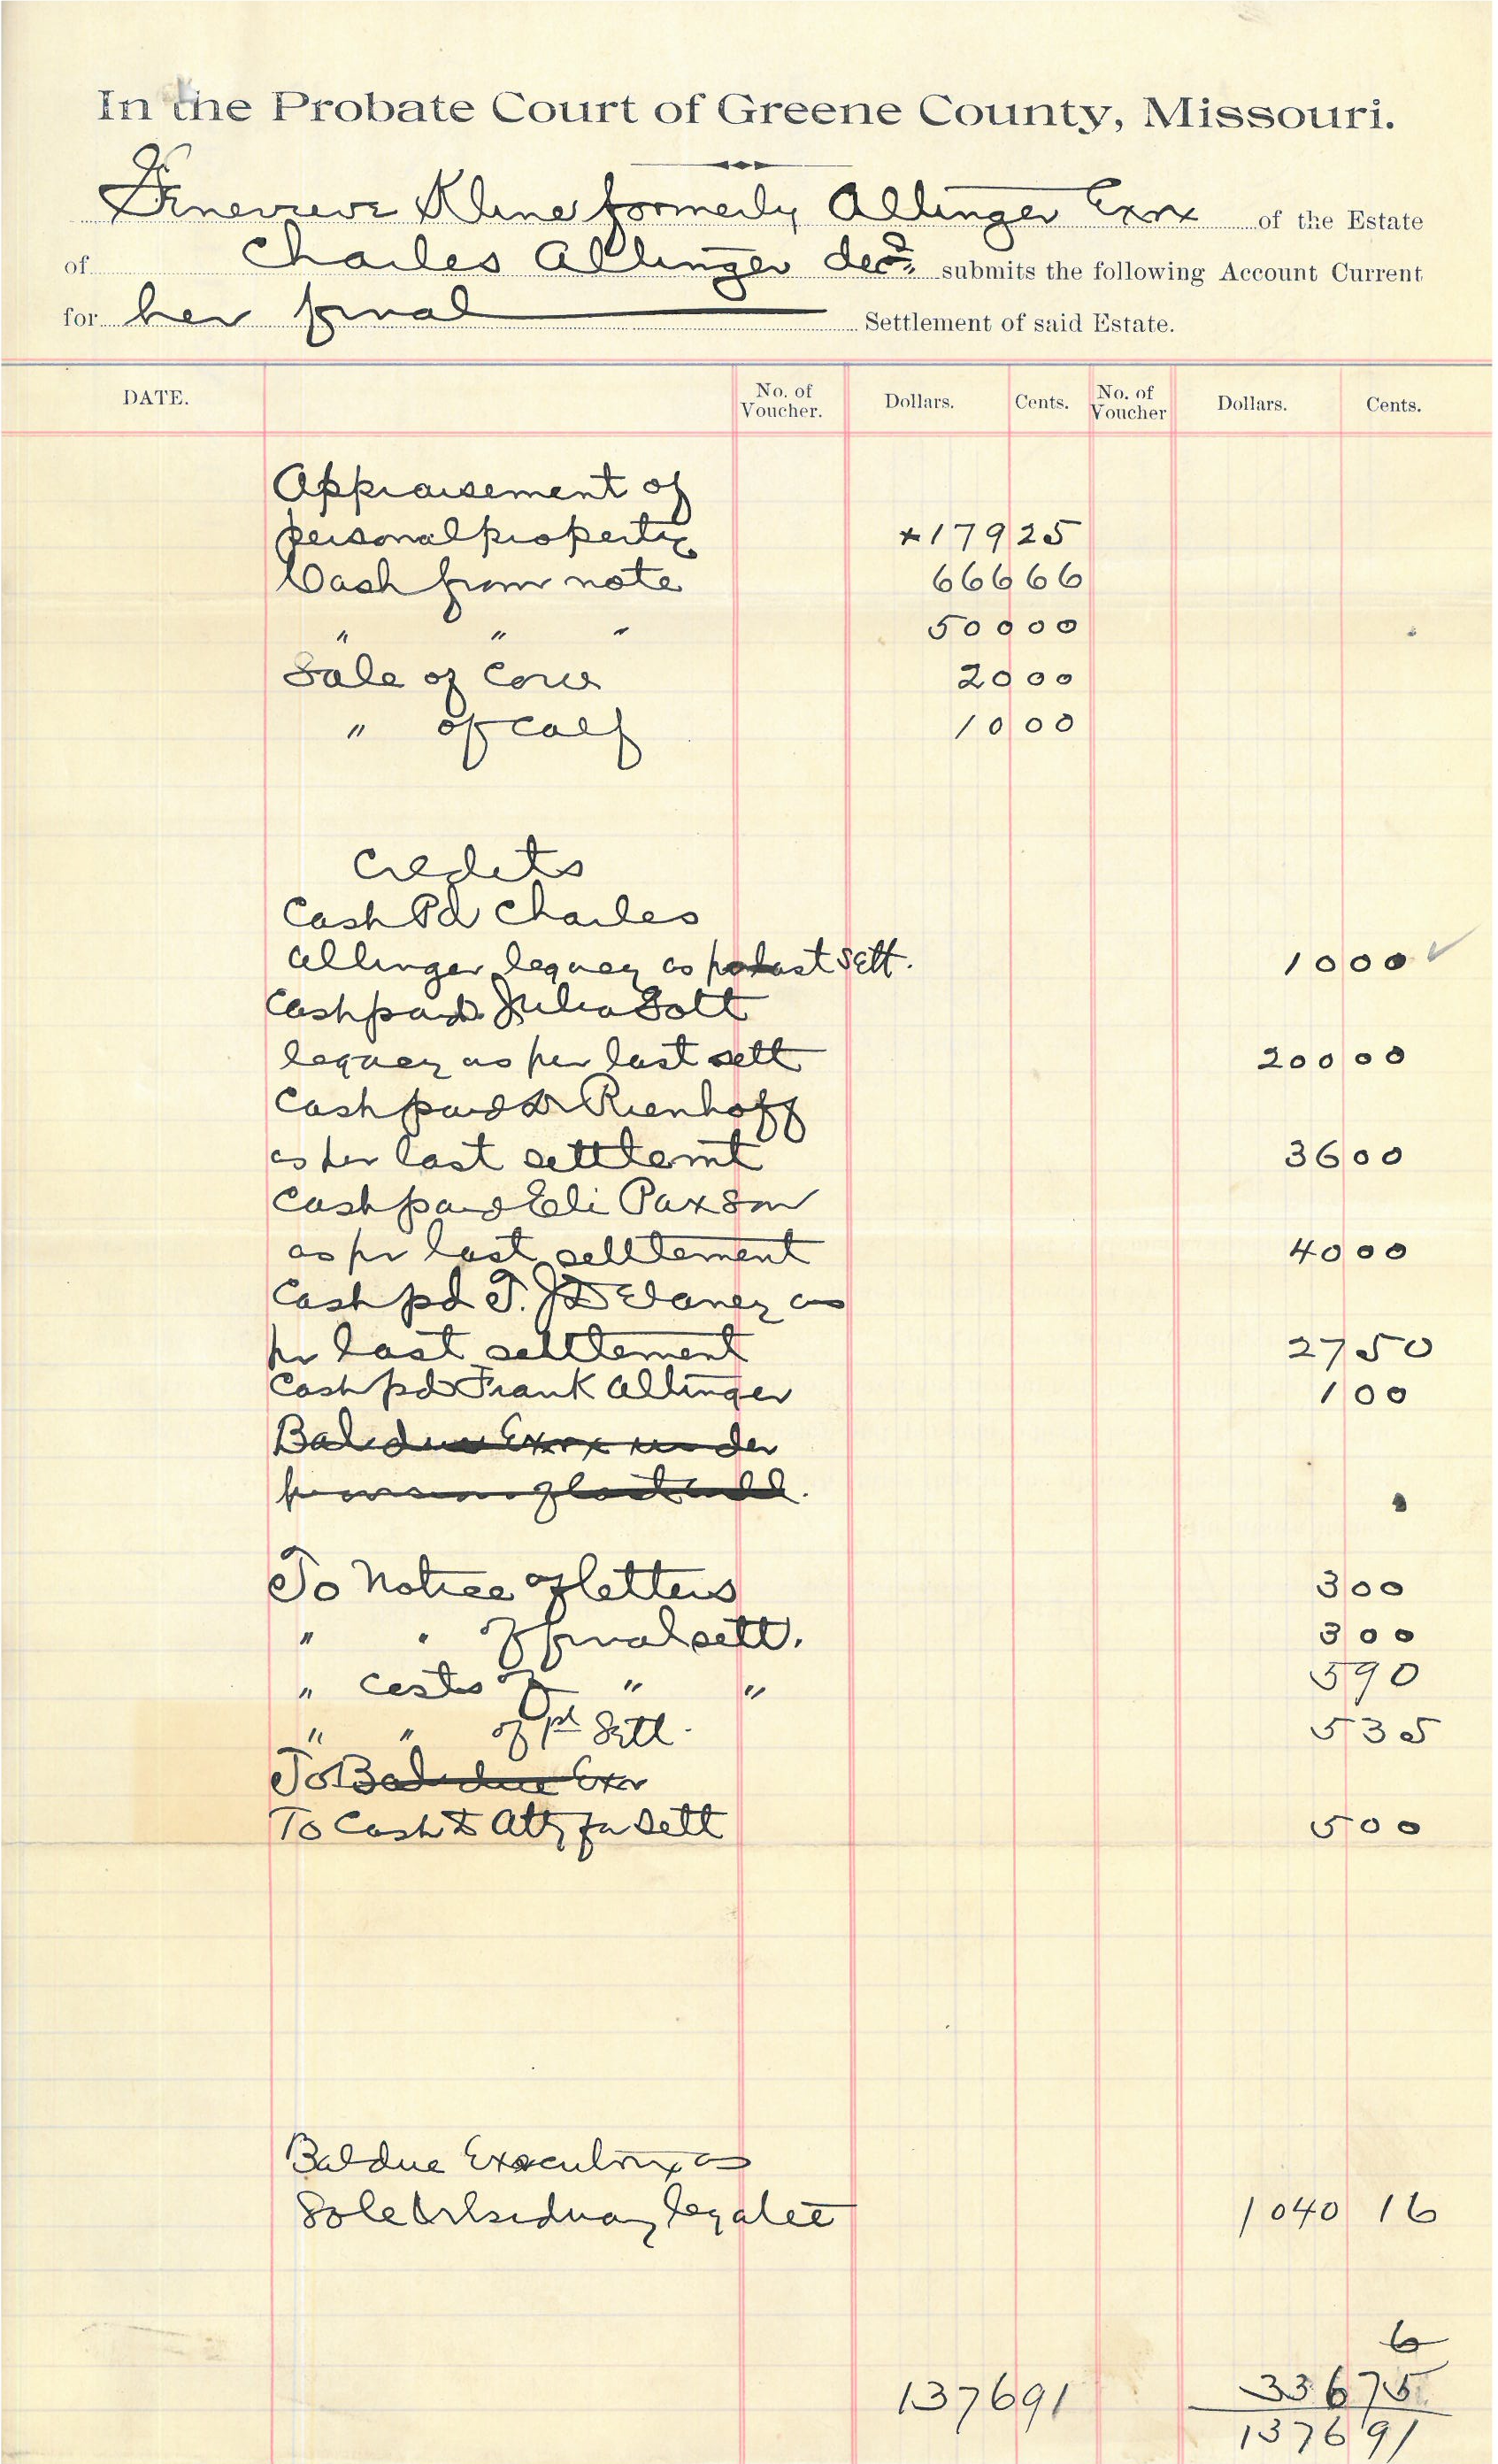 In the Probate Court of Greene County, Missouri.
Genevieve Kline formerly Allinger Exrx of the Estate
of Charles Allinger decd submits the following Account Current
for her final Settlement of said Estate.
DATE. No. of Voucher. Dollars. Cents. No. of Voucher Dollars. Cents.
Appraisement of
personal property 179 25
Cash from note 666 66
" " " 500 00
Sale of Cow 20 00
" of calf 10 00
Credits
Cash Pd Charles
Allinger legacy as last sett. 10 00
Cash paid Julia Gott
legacy as per last sett 200 00
Cash paid Dr Rienhoff
as per last settlemt 36 00
Cash paid Eli Paxson
as pr last settlement 40 00
Cash pd T. J. Delaney as
pr last settlement 27 50
Cash pd Frank Allinger 1 00
Bal due Exrx under
provision of last will.
To Notice of letters 3 00
" " of final sett. 3 00
" costs of " " 5 90
" " of 1st Sett. 5 35
To Bal due Exr
To Cash to Atty for Sett 5 00
Bal due Executrix as
Sole & residuary legatee 1040 16
6
1376 91 336 75
1376 91